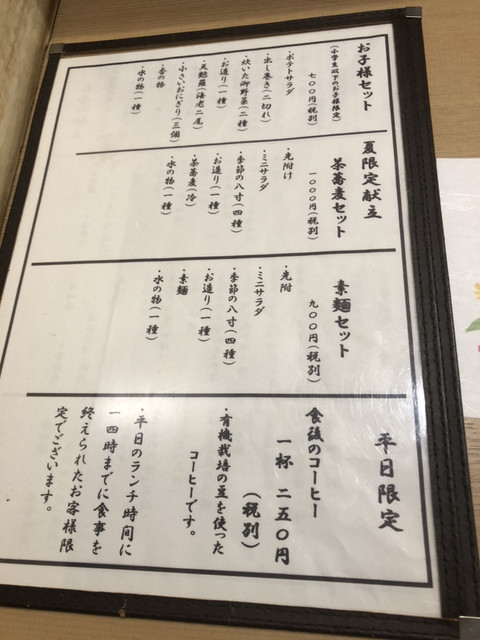 お子様セット
(小学生以下のお子様限定)
七〇〇円(税別)
・ポテトサラダ
・出し巻き(二切れ)
・炊いた御野菜(二種)
・お造り(一種)
・天麩羅(海老二尾)
・小さいおにぎり(三個)
・香の物
・水の物(一種)
夏限定献立
茶蕎麦セット
一〇〇〇円(税別)
・先附け
・ミニサラダ
・季節の八寸(四種)
・お造り(一種)
・茶蕎麦(冷)
・水の物(一種)
素麺セット
九〇〇円(税別)
・先附
・ミニサラダ
・季節の八寸(四種)
・お造り(一種)
・素麺
・水の物(一種)
平日限定
食後のコーヒー
一杯 二五〇円
(税別)
・有機栽培の豆を使った
コーヒーです。
・平日のランチ時間に
一四時までに食事を
終えられたお客様限
定でございます。